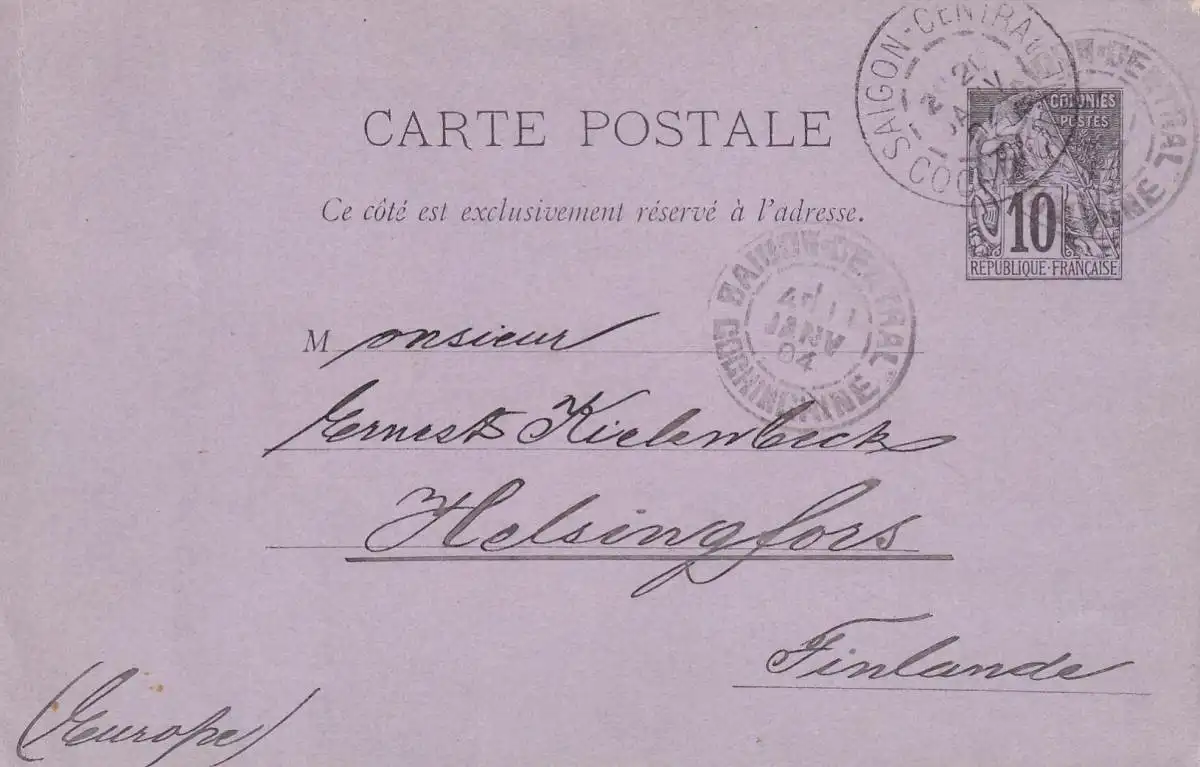 CARTE POSTALE
Ce côté est exclusivement réservé à l'adresse.
SAIGON-CENTRAL
COLONIES
POSTES
10
RÉPUBLIQUE FRANÇAISE
SAIGON-CENTRAL
JANV
94
COCHINCHINE
Monsieur
Ernest Kielenbeck
Helsingfors
Finlande
(Europe)